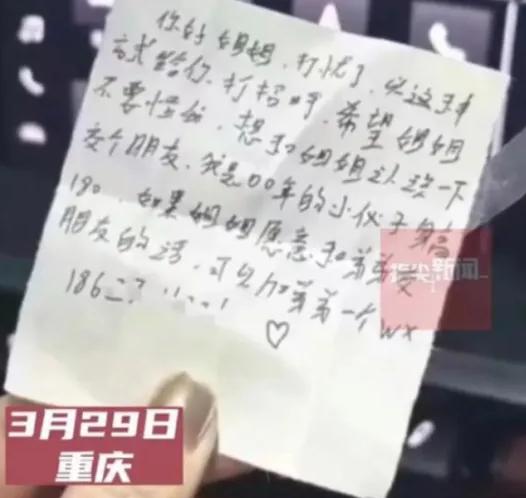 你好 姐姐，打扰了，以这种
方式给你打招呼，希望姐姐
不要怪我，想和姐姐认识一下
交个朋友，我是00年的小伙子身高
180，如果姐姐愿意和弟弟交
朋友的话，可以加弟弟一个wx
186
♡
指尖新闻
3月29日
重庆